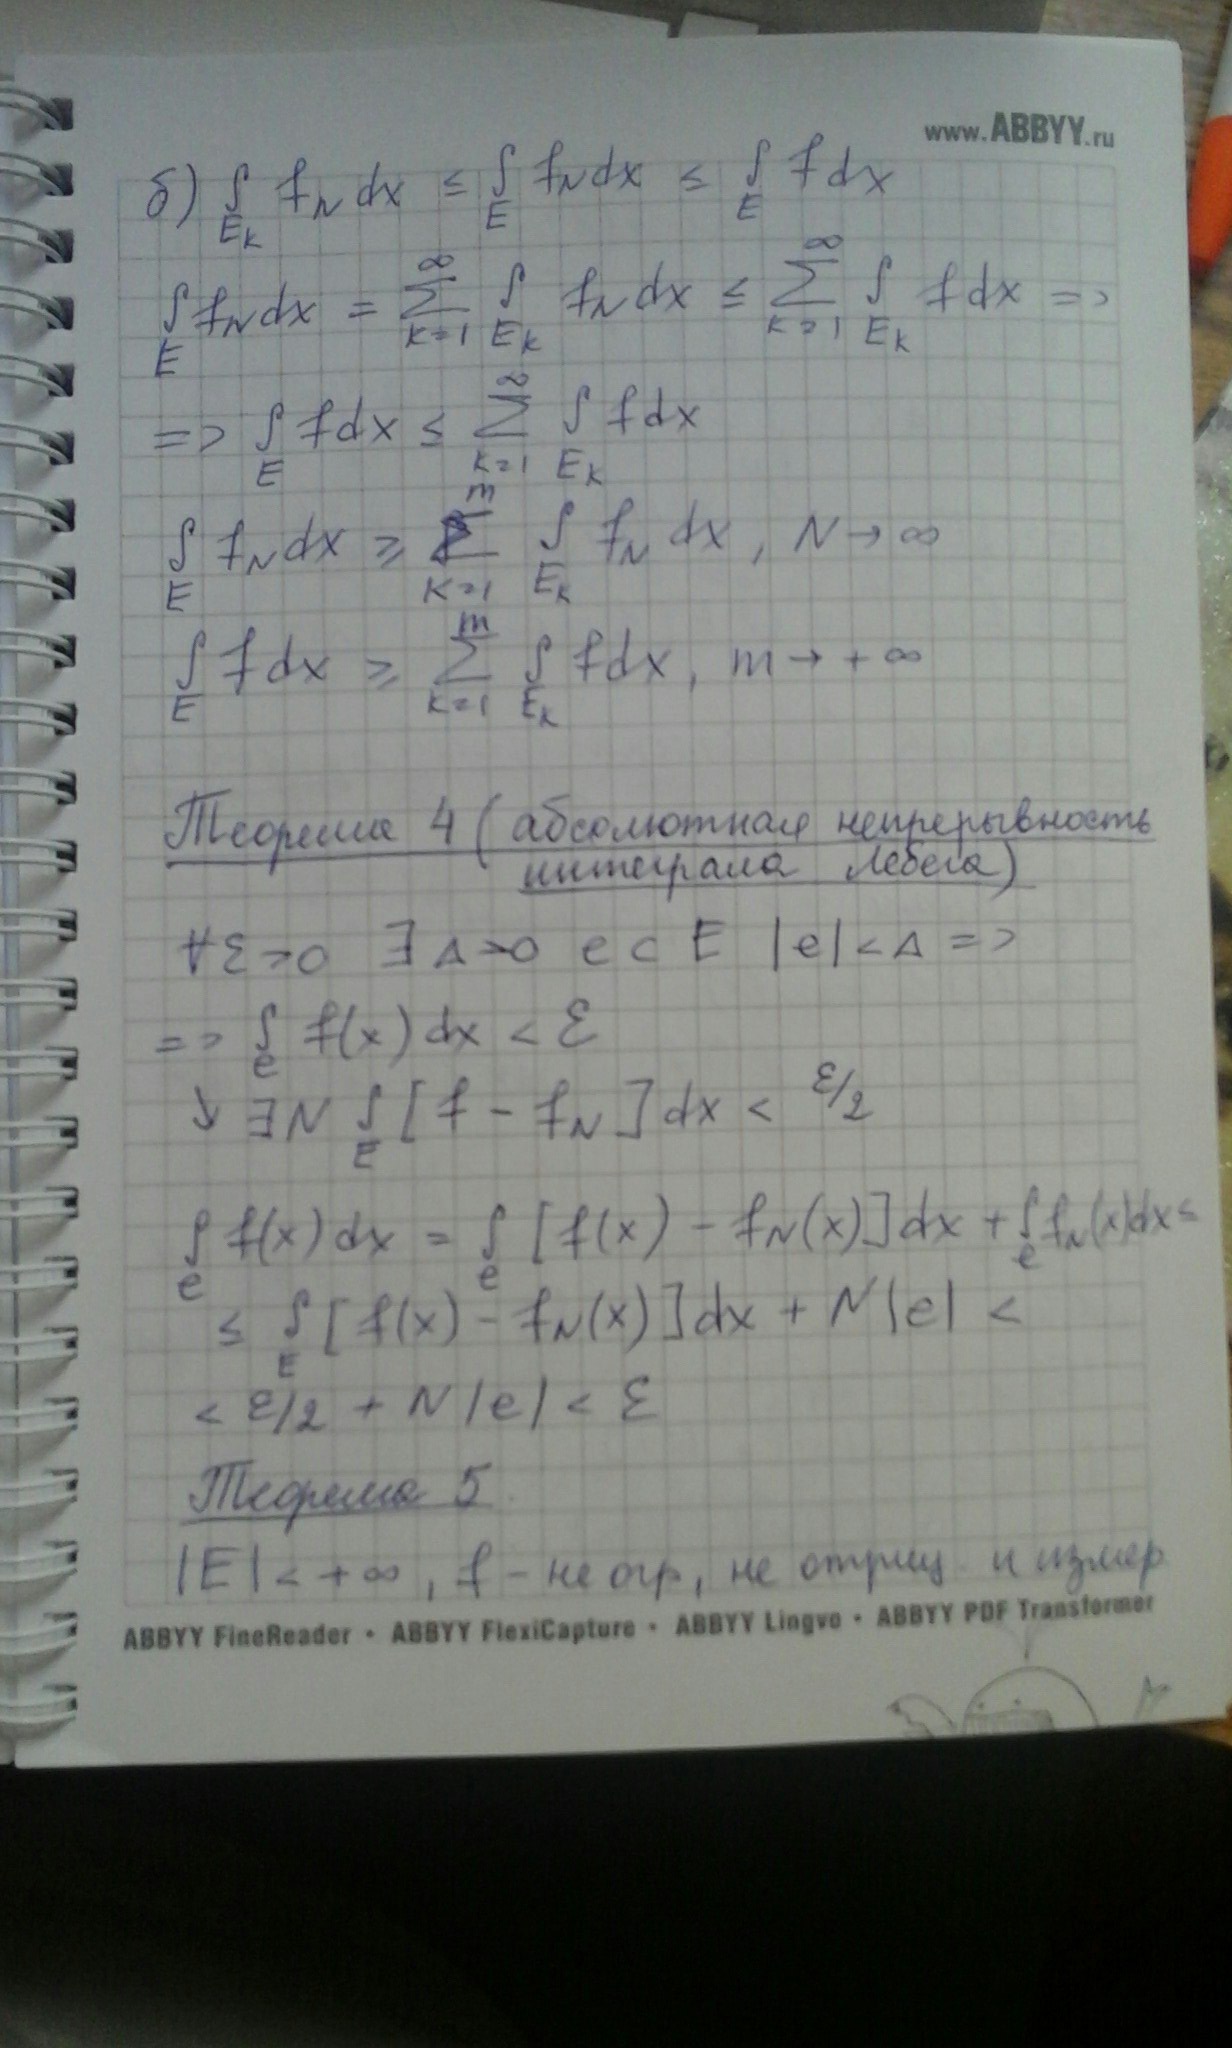 www.ABBYY.ru
б) ∫_{E_k} f_N dx ≤ ∫_E f_N dx ≤ ∫_E f dx
∫_E f_N dx = ∑_{k=1}^∞ ∫_{E_k} f_N dx ≤ ∑_{k=1}^∞ ∫_{E_k} f dx =>
=> ∫_E f dx ≤ ∑_{k=1}^∞ ∫_{E_k} f dx
∫_E f_N dx ≥ ∑_{k=1}^m ∫_{E_k} f_N dx, N → ∞
∫_E f dx ≥ ∑_{k=1}^m ∫_{E_k} f dx, m → +∞
Теорема 4 (абсолютная непрерывность
интеграла Лебега)
∀ε>0 ∃Δ>0 e ⊂ E |e| < Δ =>
=> ∫_e f(x) dx < ε
∃N ∫_E [f - f_N] dx < ε/2
∫_e f(x) dx = ∫_e [f(x) - f_N(x)] dx + ∫_e f_N(x) dx ≤
≤ ∫_E [f(x) - f_N(x)] dx + N|e| <
< ε/2 + N|e| < ε
Теорема 5.
|E| < +∞, f - не огр, не отриц. и измер
ABBYY FineReader • ABBYY FlexiCapture • ABBYY Lingvo • ABBYY PDF Transformer